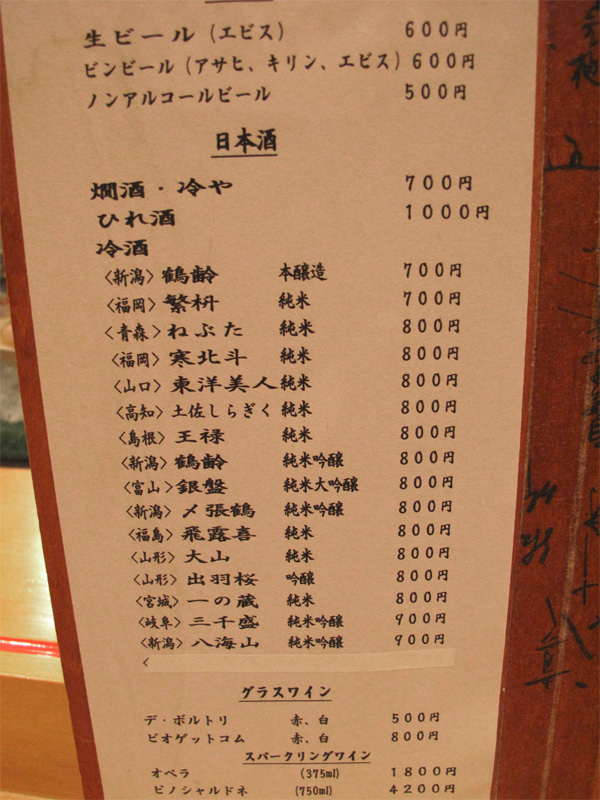 生ビール（エビス） 600円
ビンビール（アサヒ、キリン、エビス）600円
ノンアルコールビール 500円
日本酒
燗酒・冷や 700円
ひれ酒 1000円
冷酒
〈新潟〉鶴齢 本醸造 700円
〈福岡〉繁枡 純米 700円
〈青森〉ねぶた 純米 800円
〈福岡〉寒北斗 純米 800円
〈山口〉東洋美人 純米 800円
〈高知〉土佐しらぎく 純米 800円
〈島根〉王禄 純米 800円
〈新潟〉鶴齢 純米吟醸 800円
〈富山〉銀盤 純米大吟醸 800円
〈新潟〉〆張鶴 純米吟醸 800円
〈福島〉飛露喜 純米 800円
〈山形〉大山 純米 800円
〈山形〉出羽桜 吟醸 800円
〈宮城〉一の蔵 純米 800円
〈岐阜〉三千盛 純米吟醸 900円
〈新潟〉八海山 純米吟醸 900円
〈
グラスワイン
デ・ボルトリ 赤、白 500円
ビオゲットコム 赤、白 800円
スパークリングワイン
オペラ （375ml） 1800円
ピノシャルドネ （750ml） 4200円